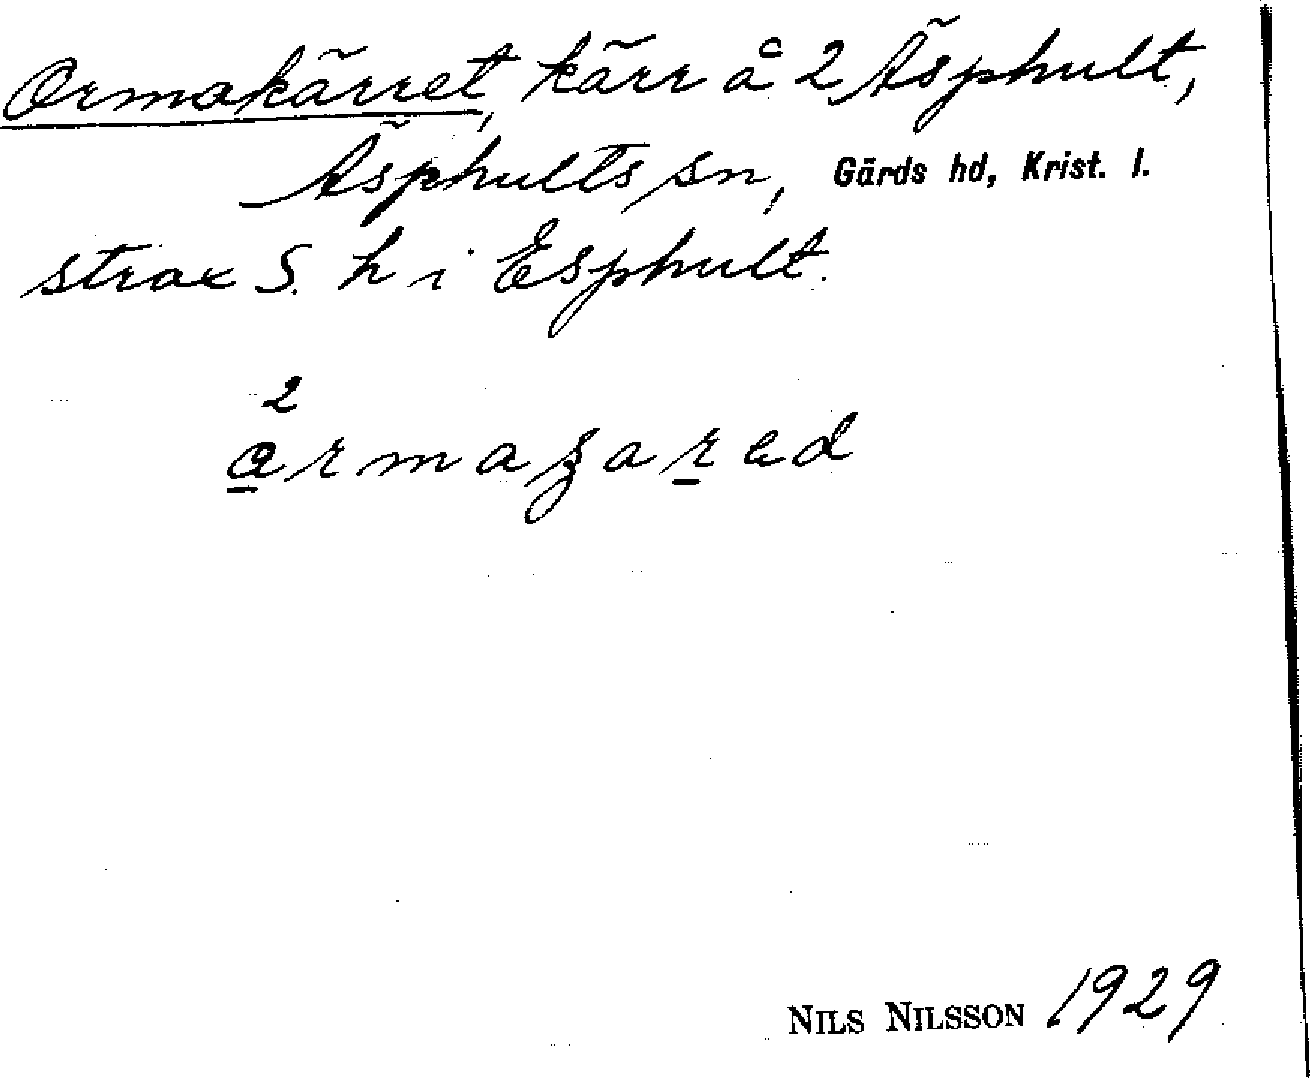 Ormakärret, kärr å 2 Äsphult,
Äsphults sn, Gärds hd, Krist. l.
strax S. h i Esphult.
2
armaʒared
NILS NILSSON 1929